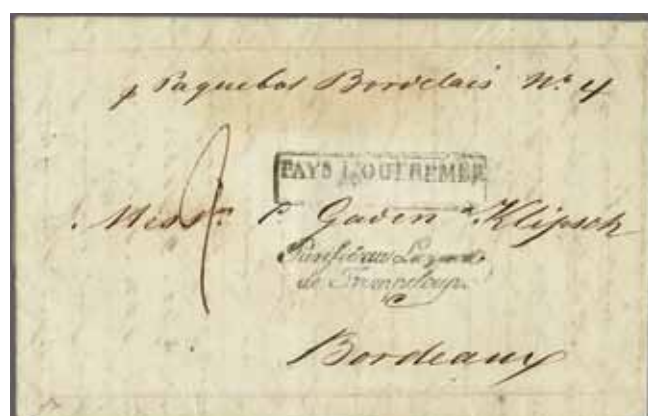 p Paquebot Bordelais No. 4
PAYS D'OUTREMER
Messrs P. Gaden & Klipsch
Purifié au Lazaret
de Trompeloup.
Bordeaux